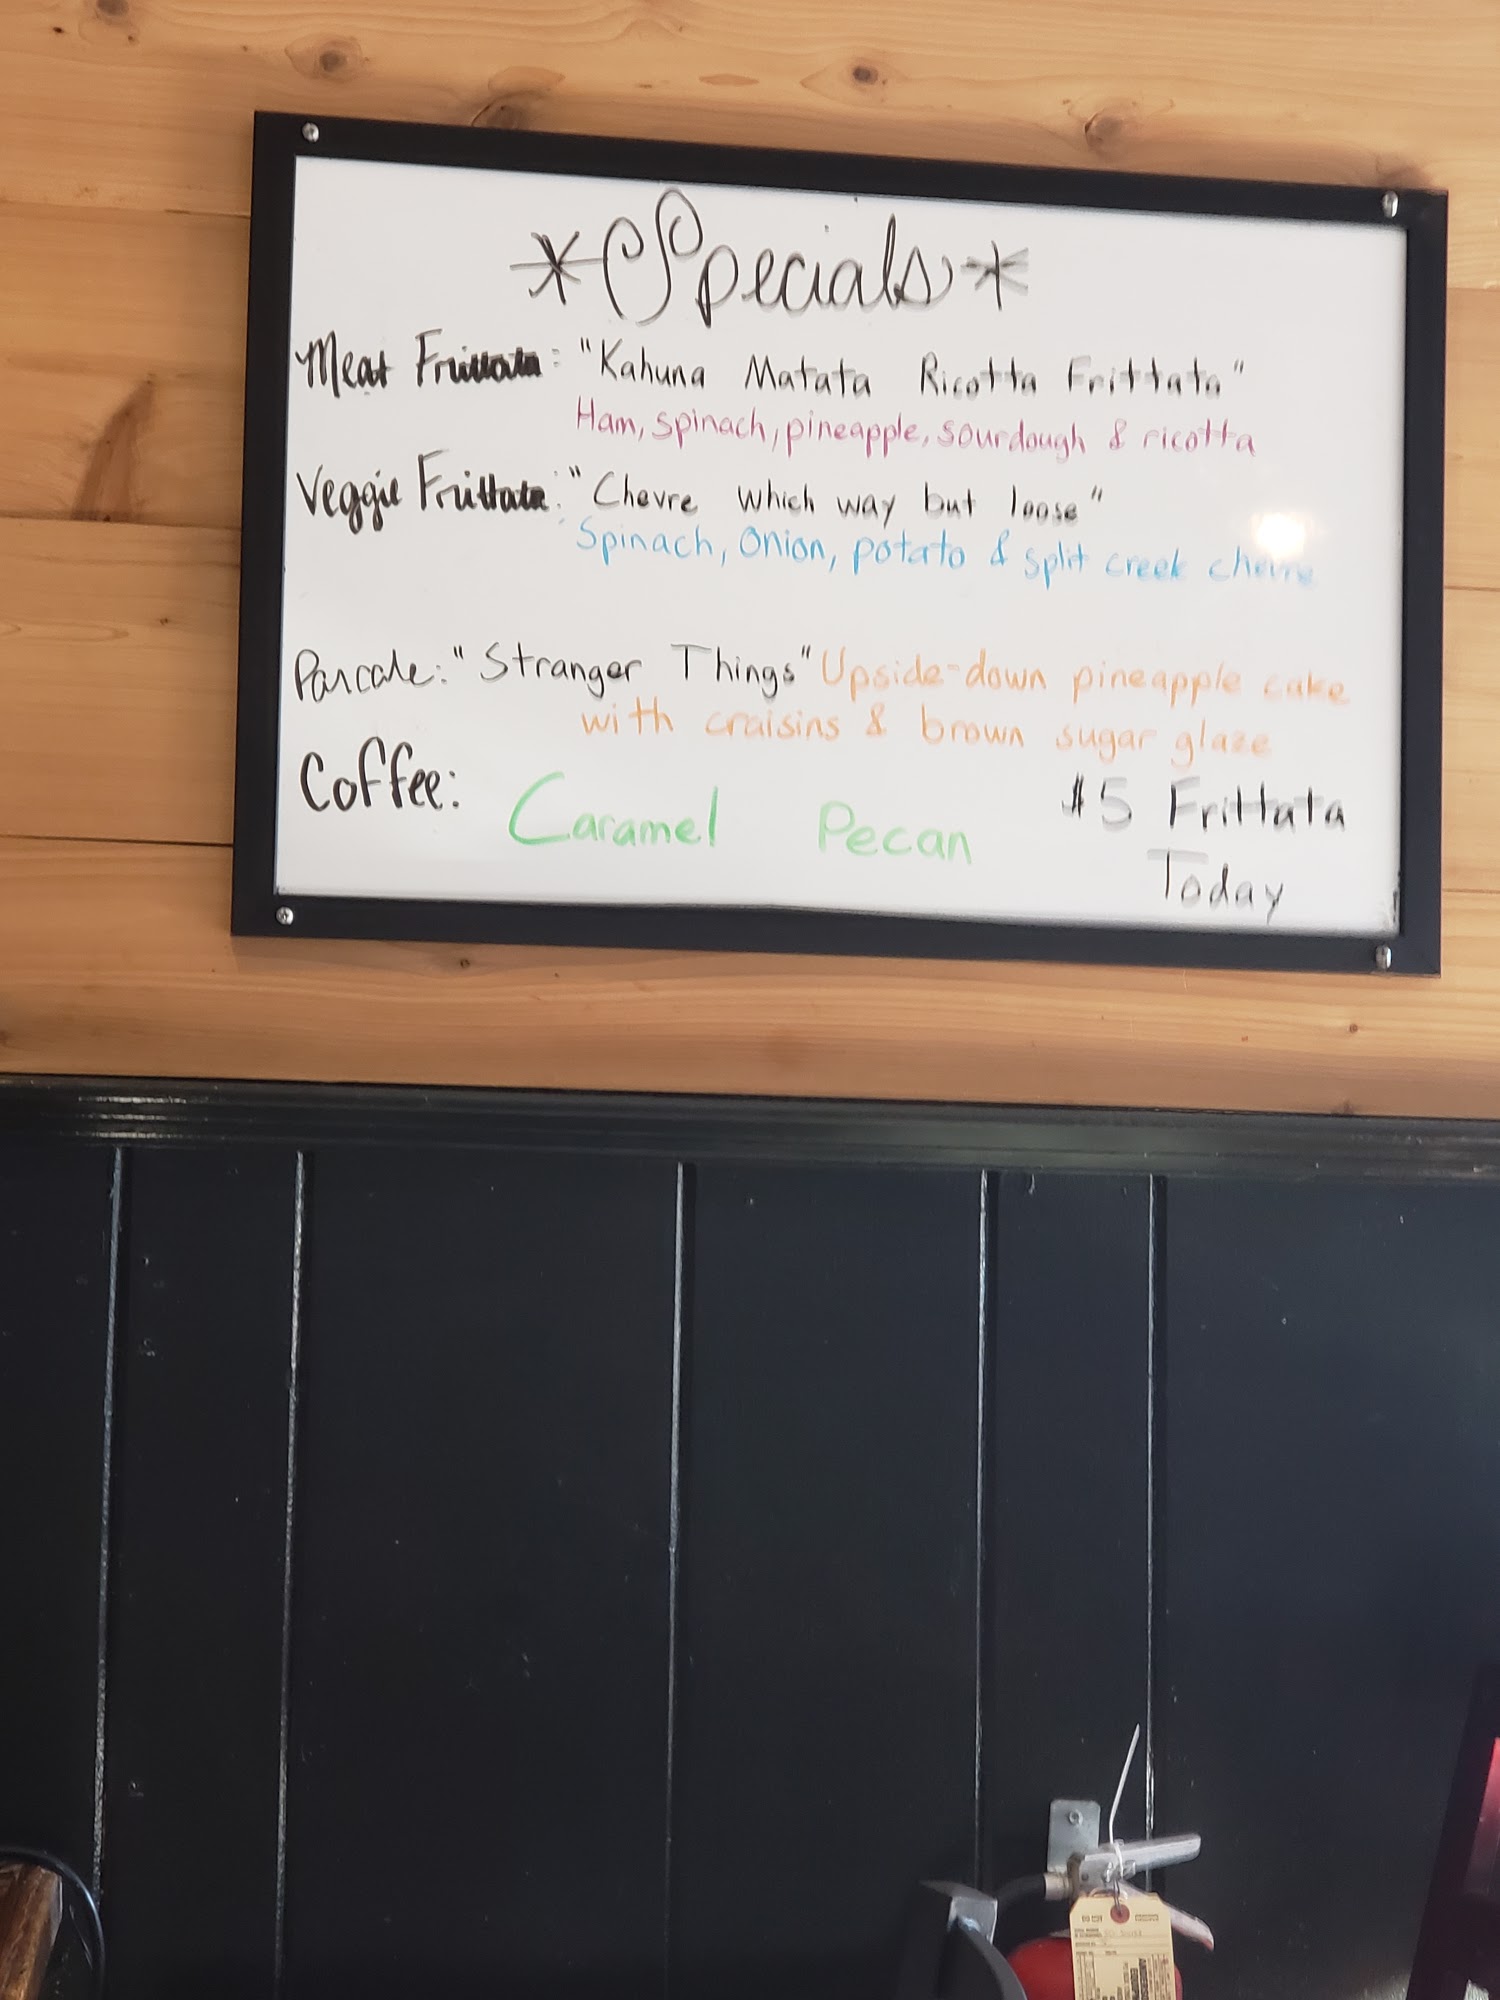 *Specials*
Meat Frittata: "Kahuna Matata Ricotta Frittata"
Ham, spinach, pineapple, sourdough & ricotta
Veggie Frittata: "Chevre which way but loose"
Spinach, Onion, potato & split creek chevre
Pancake: "Stranger Things" Upside-down pineapple cake
with craisins & brown sugar glaze
Coffee: Caramel Pecan
$5 Frittata
Today